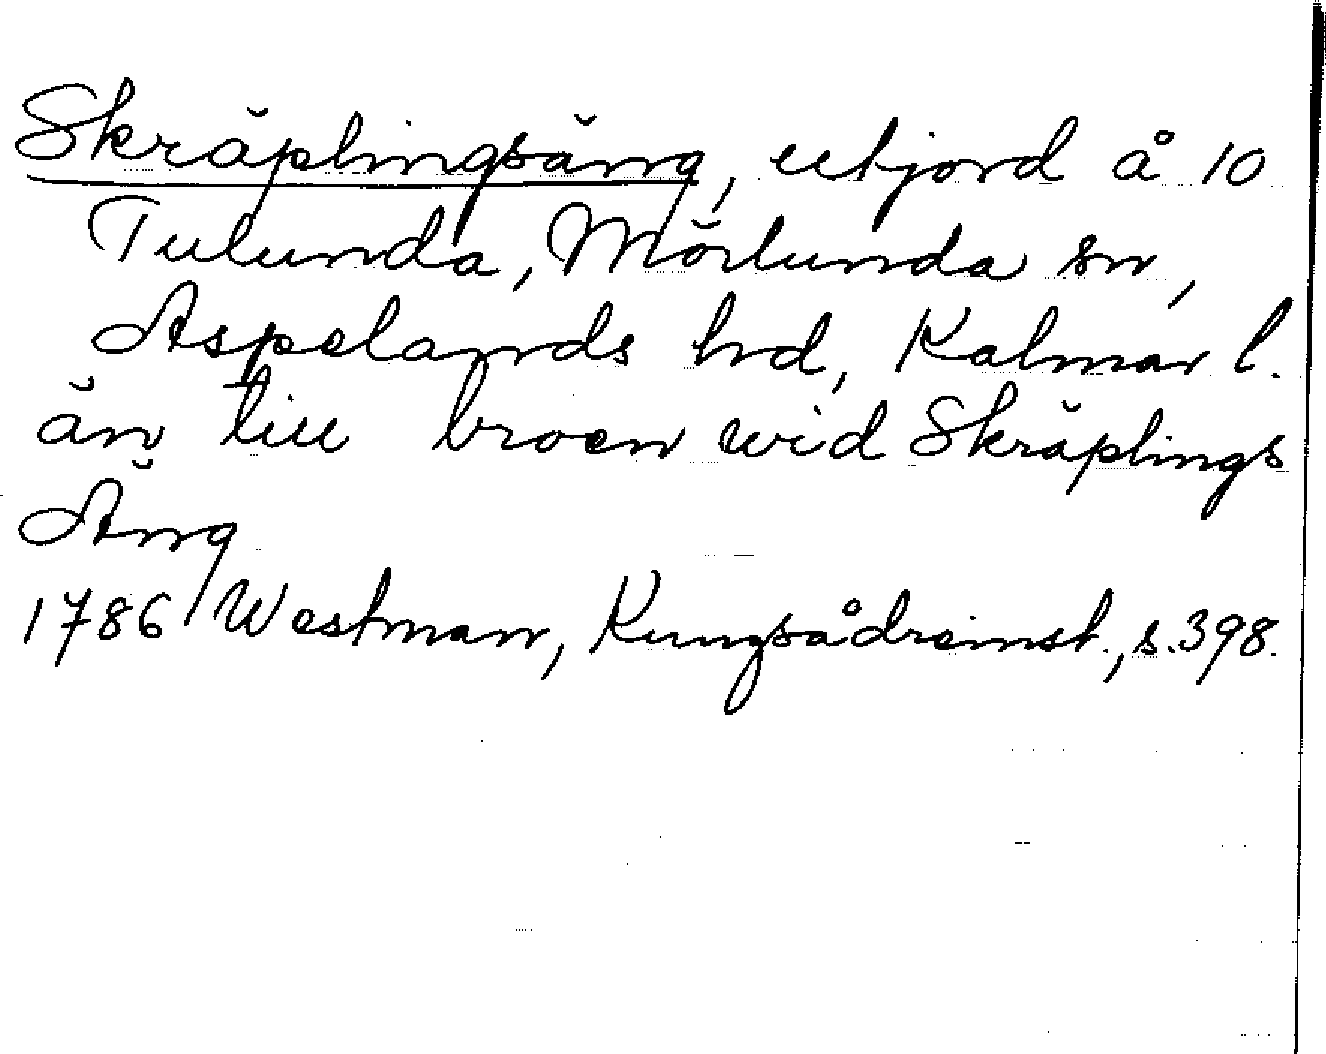 Skräplingsäng, utjord å 10
Tulunda, Mörlunda sn,
Aspelands hd, Kalmar l.
än till broen wid Skräplings
Äng
1786 Westman, Kungsådreinst., s.398.